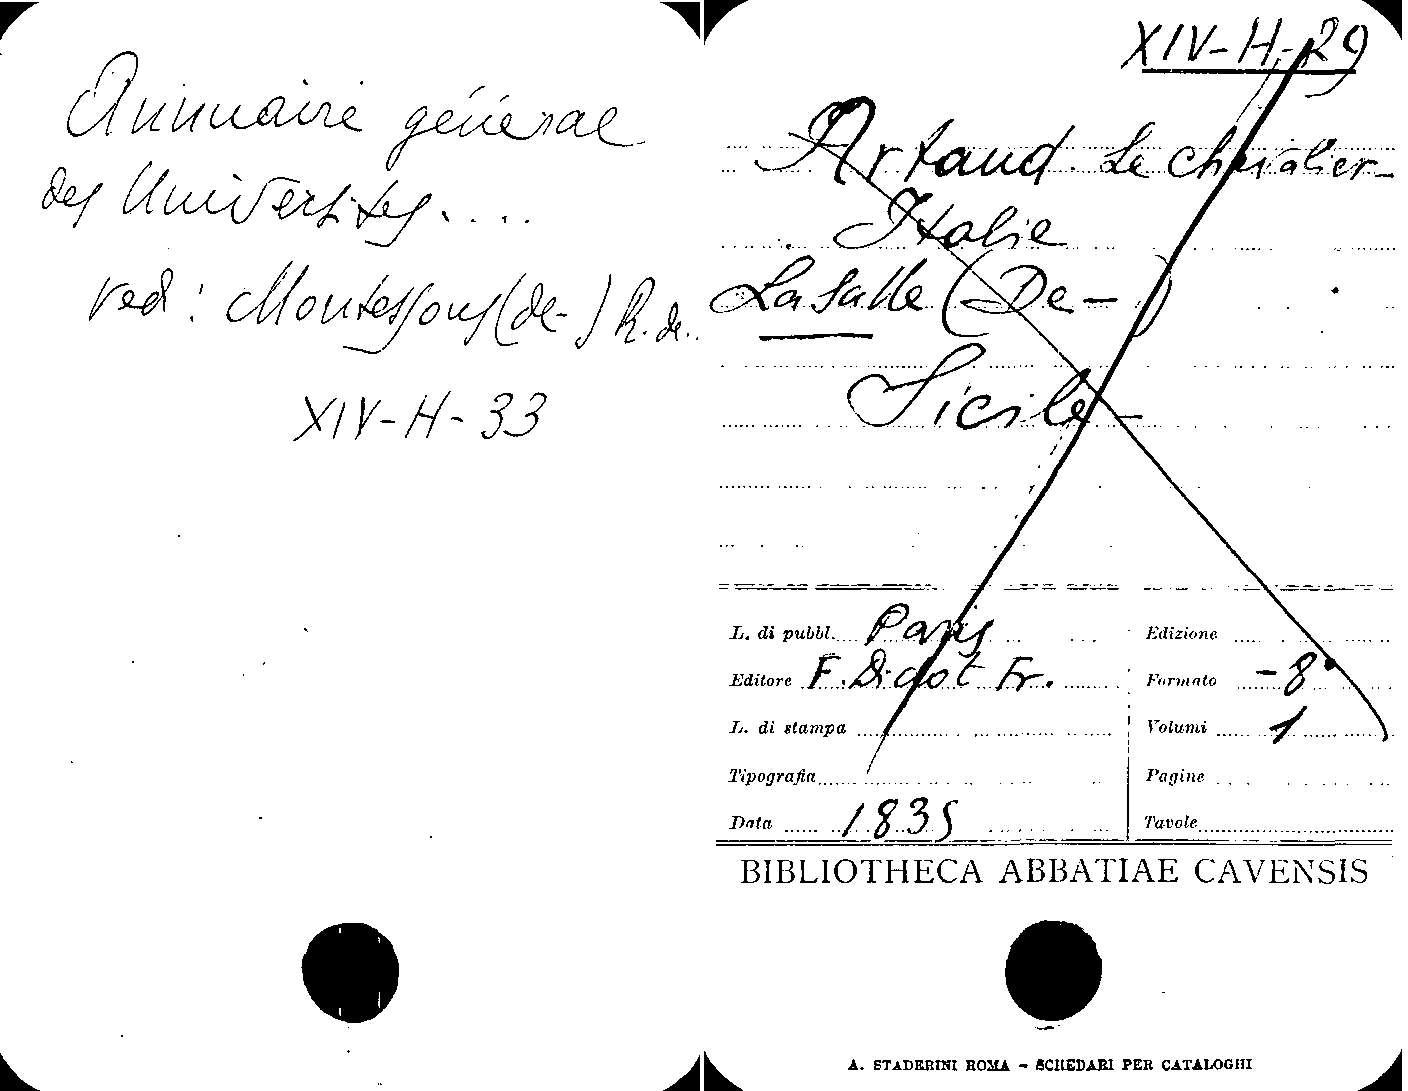 Annuaire général
des Universités....
ved: Montessous (de-) R. de..
XIV-H-33
XIV-H-29
Artaud Le chevalier-
Italie
La Salle (De-)
Sicile-
L. di pubbl. Paris
Edizione
Editore F. Didot Fr.
Formato -8°
L. di stampa
Volumi 1
Tipografia
Pagine
Data 1835
Tavole
BIBLIOTHECA ABBATIAE CAVENSIS
A. STADERINI ROMA - SCHEDARI PER CATALOGHI